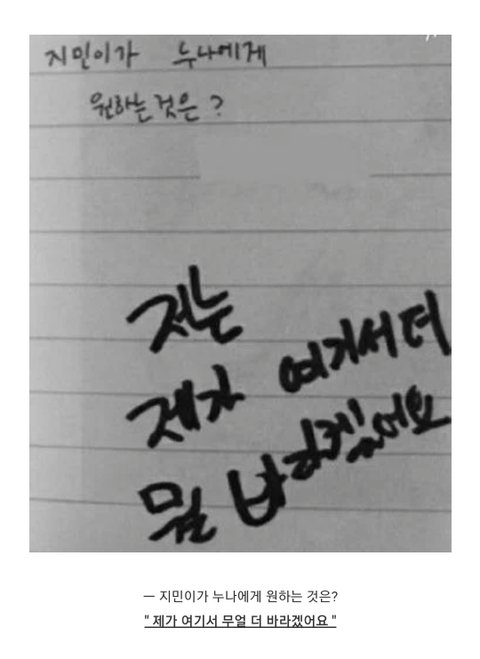 지민이가 누나에게
원하는 것은?
저는
제가 여기서 더
뭘 바라겠어요
ㅡ 지민이가 누나에게 원하는 것은?
" 제가 여기서 무얼 더 바라겠어요 "